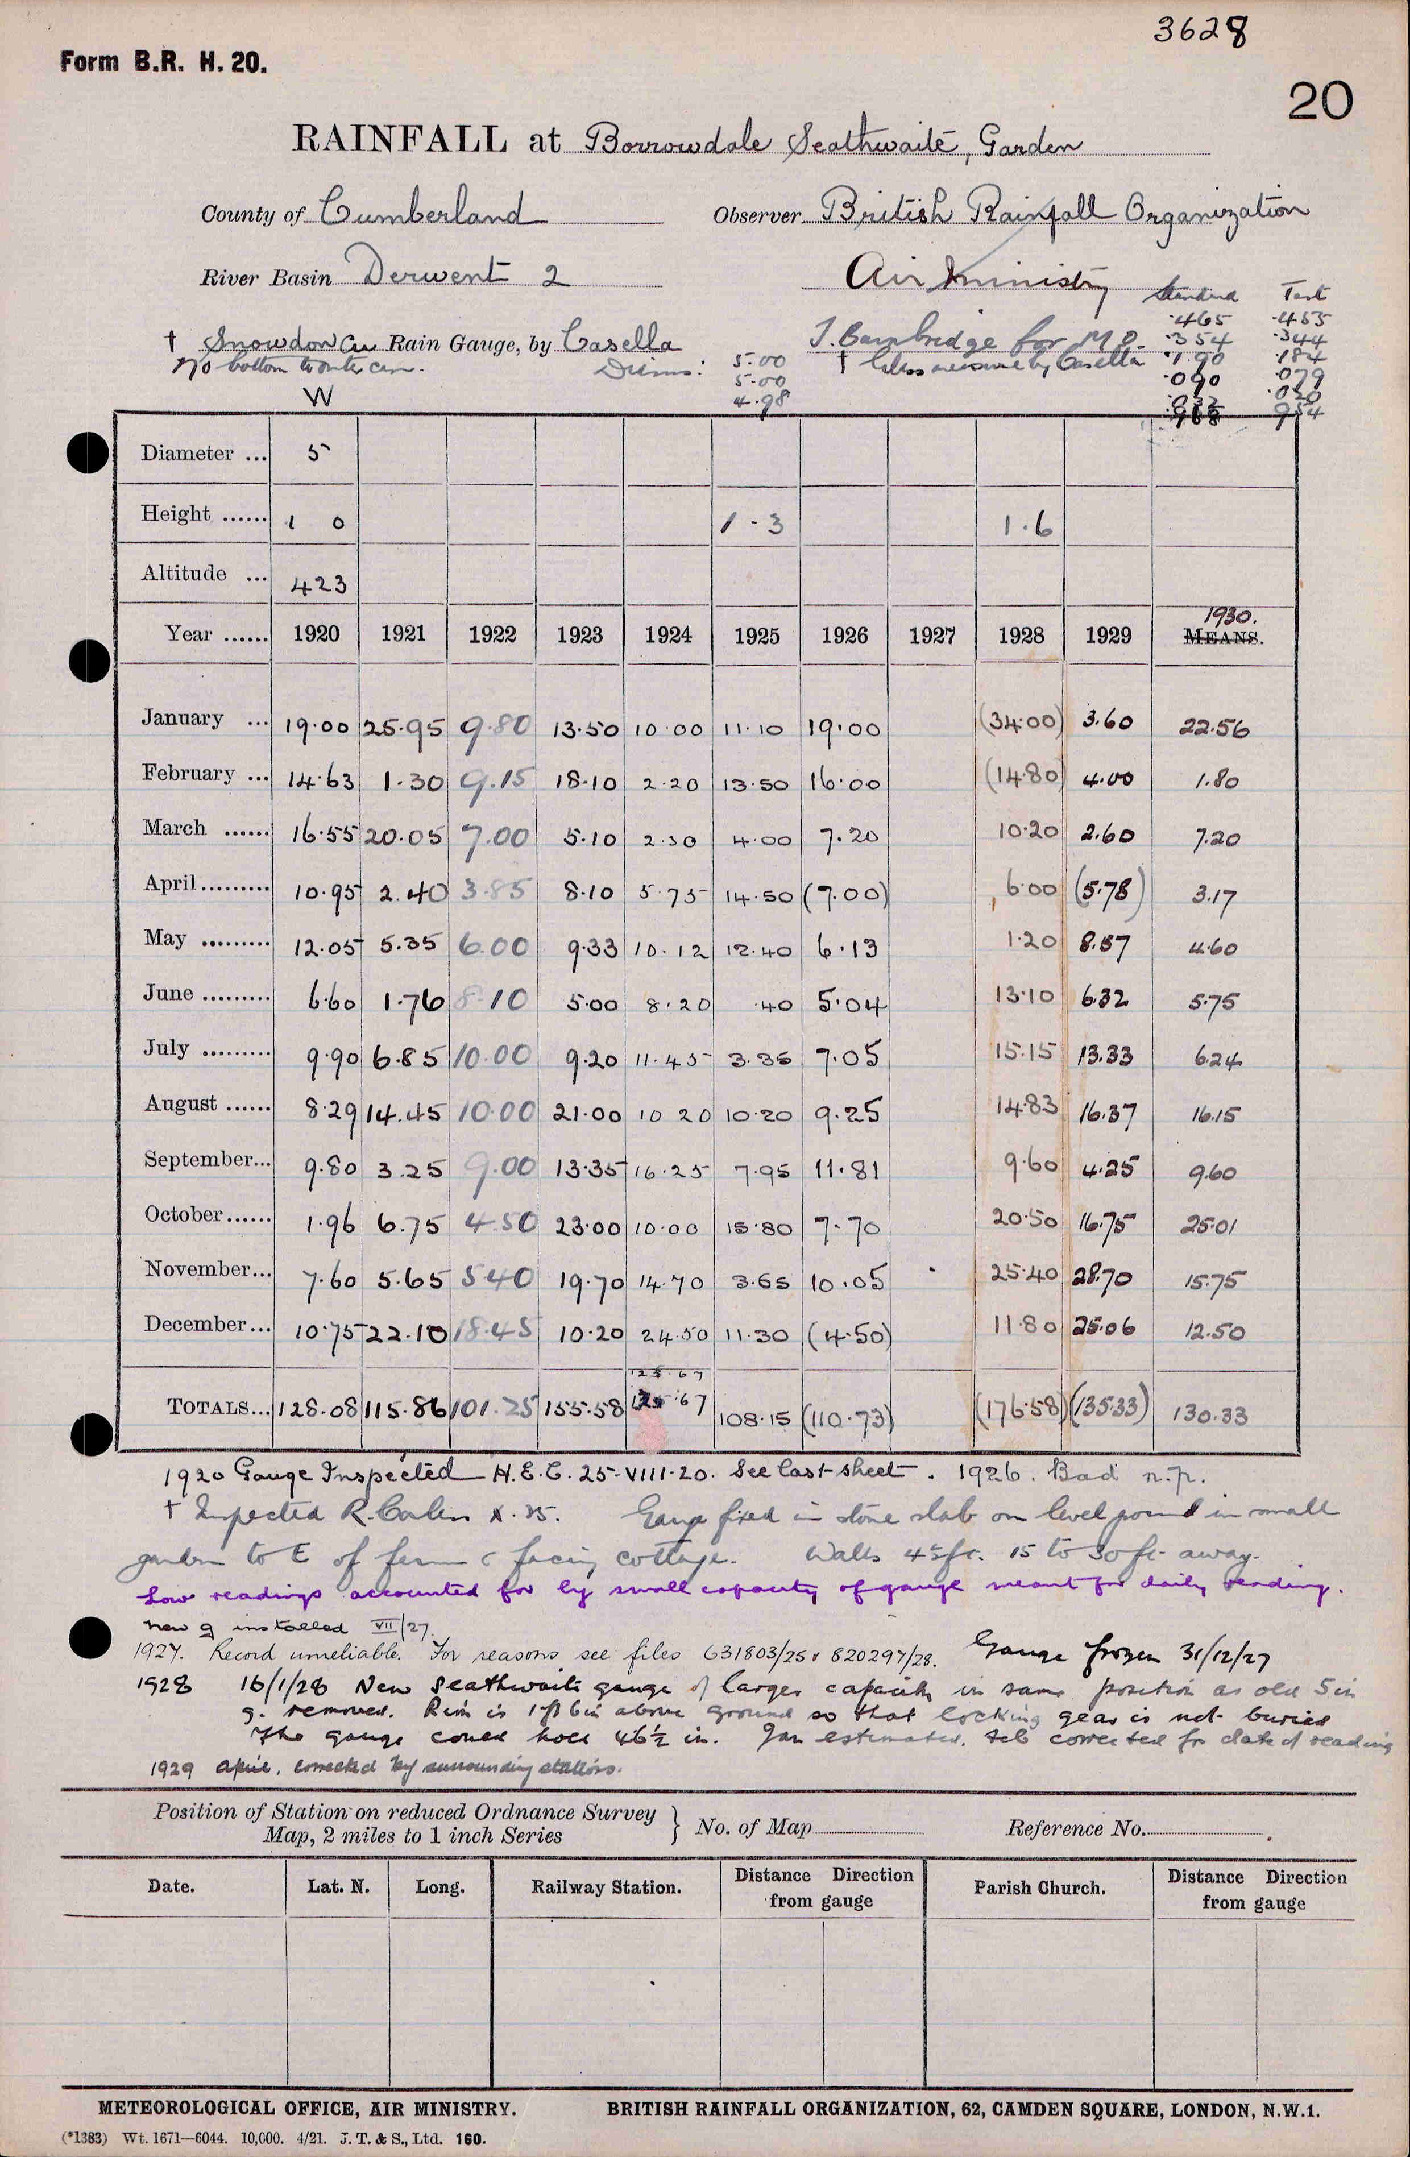 3628
Form B.R. H. 20.
20
RAINFALL at Borrowdale Seathwaite, Garden
County of Cumberland Observer British Rainfall Organization
River Basin Derwent 2 Air Ministry
Standard Test
† Snowdon Cu Rain Gauge, by Casella J. Bambridge for M.O.
No bottom to outer can. Diams: 5.00 † Glass measure by Casella
5.00
4.98
.465 .455
.354 .344
.190 .184
.090 .079
.032 .020
.968 954
W
Diameter ... 5
Height ...... 1 0 1 - 3 1 . 6
Altitude ... 423
Year ...... 1920 1921 1922 1923 1924 1925 1926 1927 1928 1929 1930. MEANS.
January ... 19.00 25.95 9.80 13.50 10.00 11.10 19.00 (34.00) 3.60 22.56
February ... 14.63 1.30 9.15 18.10 2.20 13.50 16.00 (14.80) 4.00 1.80
March ...... 16.55 20.05 7.00 5.10 2.30 4.00 7.20 10.20 2.60 7.20
April ......... 10.95 2.40 3.85 8.10 5.75 14.50 (7.00) 6.00 (5.78) 3.17
May ......... 12.05 5.35 6.00 9.33 10.12 12.40 6.13 1.20 8.57 4.60
June ......... 6.60 1.76 8.10 5.00 8.20 .40 5.04 13.10 6.32 5.75
July ......... 9.90 6.85 10.00 9.20 11.45 3.35 7.05 15.15 13.33 6.24
August ...... 8.29 14.45 10.00 21.00 10.20 10.20 9.25 14.83 16.37 16.15
September... 9.80 3.25 9.00 13.35 16.25 7.95 11.81 9.60 4.25 9.60
October...... 1.96 6.75 4.50 23.00 10.00 15.80 7.70 20.50 16.75 25.01
November... 7.60 5.65 5.40 19.70 14.70 3.65 10.05 25.40 28.70 15.75
December... 10.75 22.10 18.45 10.20 24.50 11.30 (4.50) 11.80 25.06 12.50
125.67
TOTALS... 128.08 115.86 101.25 155.58 125.67 108.15 (110.73) (176.58) (135.33) 130.33
1920 Gauge Inspected H.E.C. 25-VIII-20. See last sheet. 1926. Bad n.r.
† Inspected R. Corless X.25. Gauge fixed in stone slab on level ground in small
garden to E of farm & facing cottage. Walls 4-5 ft. 15 to 30 ft. away.
Low readings accounted for by small capacity of gauge meant for daily reading.
New g installed VII/27.
1927. Record unreliable. For reasons see files 631803/25 & 820297/28. Gauge frozen 31/12/27
1928 16/1/28 New Seathwaite gauge of larger capacity in same position as old 5 in
g. removed. Rim is 1 ft 6 in above ground so that locking gear is not buried
The gauge could hold 46½ in. Jan estimated. Feb corrected for date of reading
1929 April, corrected by surrounding stations.
Position of Station on reduced Ordnance Survey
Map, 2 miles to 1 inch Series } No. of Map Reference No.
Date. Lat. N. Long. Railway Station. Distance Direction from gauge Parish Church. Distance Direction from gauge
METEOROLOGICAL OFFICE, AIR MINISTRY. BRITISH RAINFALL ORGANIZATION, 62, CAMDEN SQUARE, LONDON, N.W.1.
(*1383) Wt. 1671—6044. 10,000. 4/21. J. T. & S., Ltd. 160.